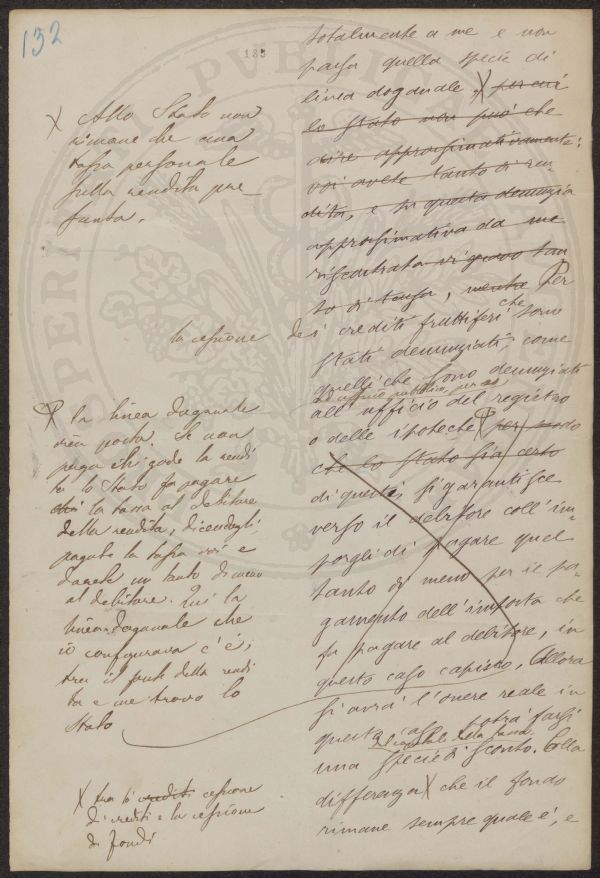 132
133
totalmente a me e non
passa quella specie di
linea doganale. X per cui
lo Stato non può che
dire approssimativamente:
voi avete tanto di ren
dita, e su questa denunzia
approssimativa da me
riscontrata vi gravo tan
to di tassa, mentre Per
i crediti fruttiferi che sono
stati denunziati, come
quelli che sono denunziati
ad ufficio pubblico, per es
all'ufficio del registro
o delle ipoteche per modo
che lo Stato sia certo
di questi, si garantisce
verso il debitore coll'im
porgli di pagare quel
tanto di meno per il pa
gamento dell'imposta che
fa pagare al debitore, in
questo caso capisco. Allora
si avrà l'onere reale in
questo caso potrà farsi
una specie di sconto. Colla
differenza X che il fondo
rimane sempre quale è, e
X Allo Stato non
rimane che una
tassa personale
sulla rendita pre
sunta.
la cessione de
la linea doganale
vien posta. Se non
paga chi gode la rendi
ta lo Stato fa pagare
la tassa al debitore
della rendita, dicendogli:
pagate la tassa voi e
darete un tanto di meno
al debitore. Qui la
linea doganale che
io configurava c'è;
tra il fonte della rendi
ta e me trovo lo
Stato
X tra la crediti cessione
di crediti e la cessione
di fondi